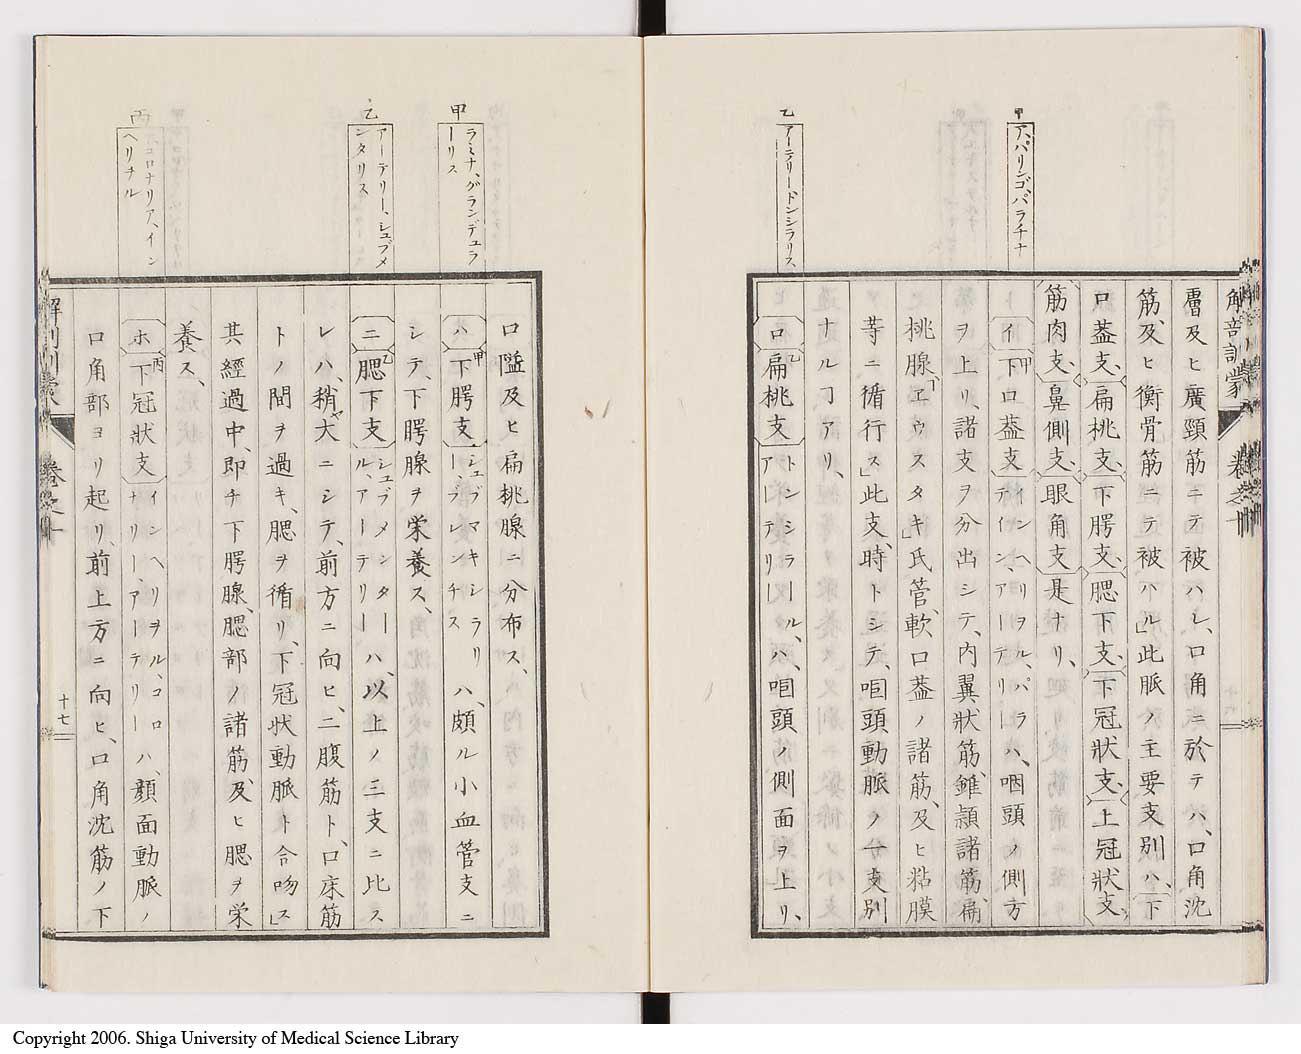 甲
ア、パリンゴ、パラチナ
乙
アーテリードンシラリス
解剖訓蒙
層及ヒ廣頸筋ニテ被ハレ、口角ニ於テハ、口角沈
筋、及ヒ衡骨筋ニテ被ハル」此脈ノ主要支別ハ、下
口蓋支、扁桃支、下腭支、腮下支、下冠狀支、上冠狀支、
筋肉支、鼻側支、眼角支是ナリ、
イ 下甲口蓋支 インヘリヲル、パラテインアーテリー ハ、咽頭ノ側方
ヲ上リ、諸支ヲ分出シテ、内翼狀筋、錐顈諸筋、扁
桃腺、ヱウスタキ」氏管、軟口蓋ノ諸筋、及ヒ粘膜
等ニ循行ス」此支、時トシテ、咽頭動脈ノ一支別
ナルヿアリ、
ロ 扁乙桃支 トンシラールアーテリー ル、ハ、咽頭ノ側面ヲ上リ、
甲
ラミナ、グランデュラーリス
乙
アーテリー、シュブメンタリス
丙
コロナリア、インヘリヲル
口隘及ヒ扁桃腺ニ分布ス、
ハ 下甲腭支 シュブマキシラリー、ブレンチス ハ、頗ル小血管支ニ
シテ、下腭腺ヲ栄養ス、
ニ 腮乙下支 シュブメンタール、アーテリー ハ、以上ノ三支ニ比ス
レハ、稍ヤ大ニシテ、前方ニ向ヒ、二腹筋ト、口床筋
トノ間ヲ過キ、腮ヲ循リ、下冠狀動脈ト合吻ス」
其經過中、即チ下腭腺、腮部ノ諸筋、及ヒ腮ヲ栄
養ス、
ホ 下丙冠狀支 インヘリヲル、コロナリー、アーテリー ハ、顔面動脈ノ
口角部ヨリ起リ、前上方ニ向ヒ、口角沈筋ノ下
十七
Copyright 2006. Shiga University of Medical Science Library